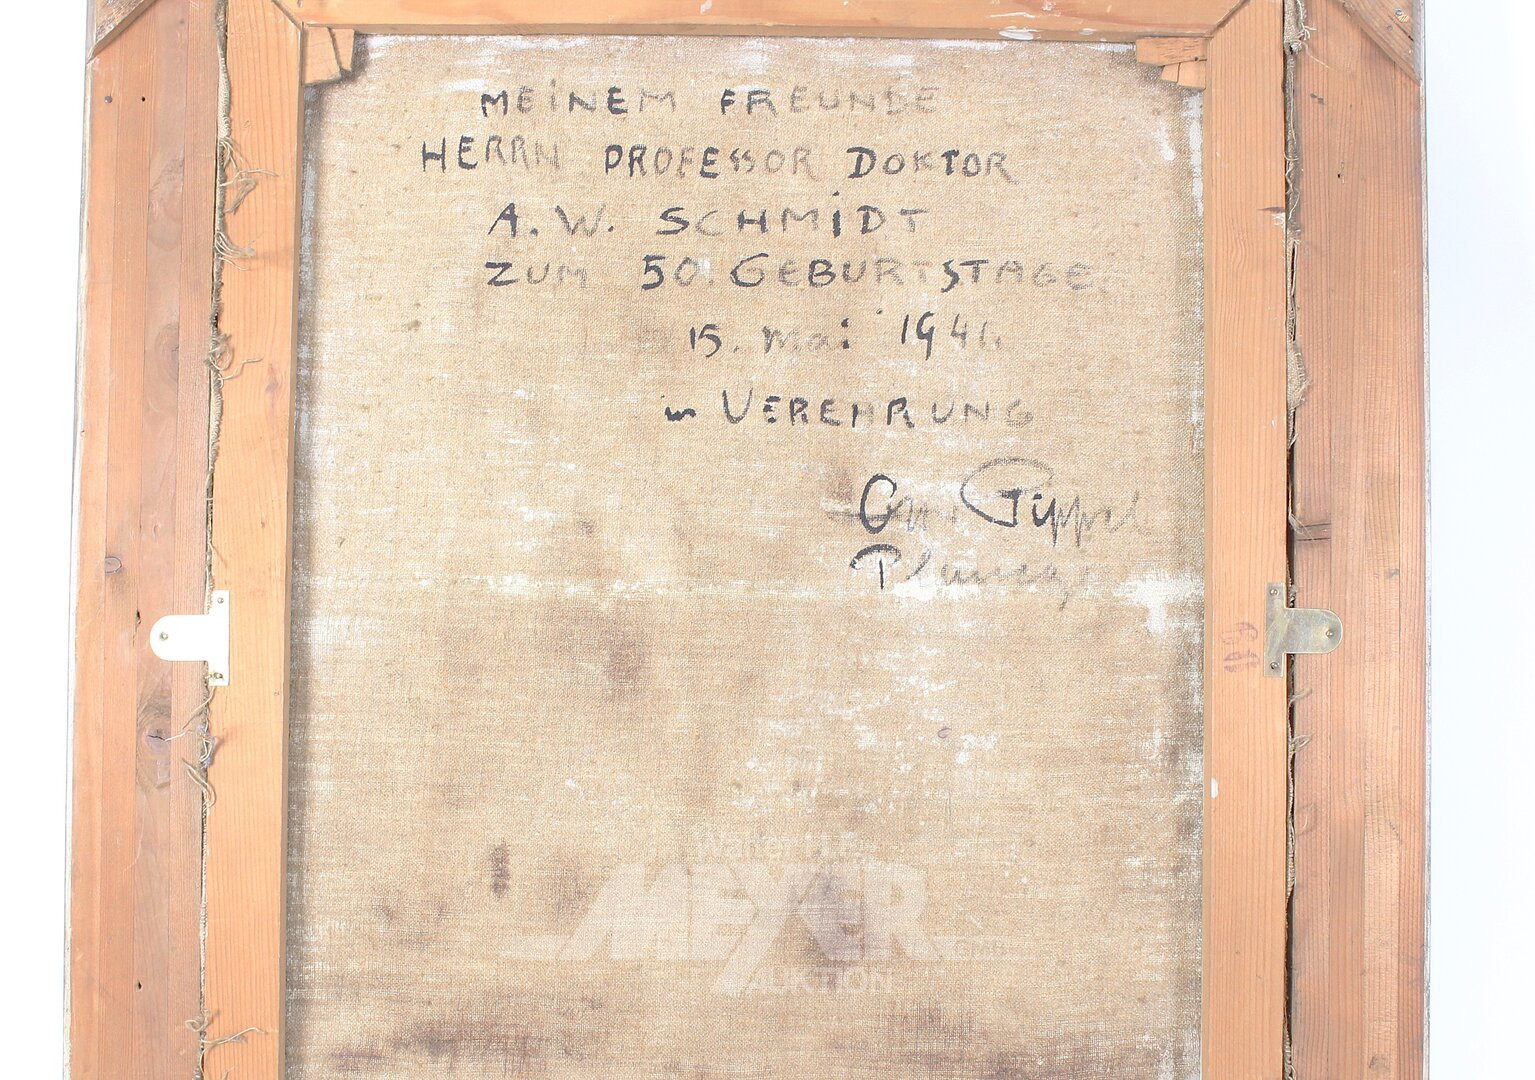 MEINEM FREUNDE
HERRN PROFESSOR DOKTOR
A. W. SCHMIDT
ZUM 50. GEBURTSTAGE
15. Mai 1941.
in VEREHRUNG
Otto Pippel
Planegg
Walter H.F.
MEYER GMBH
AUKTION